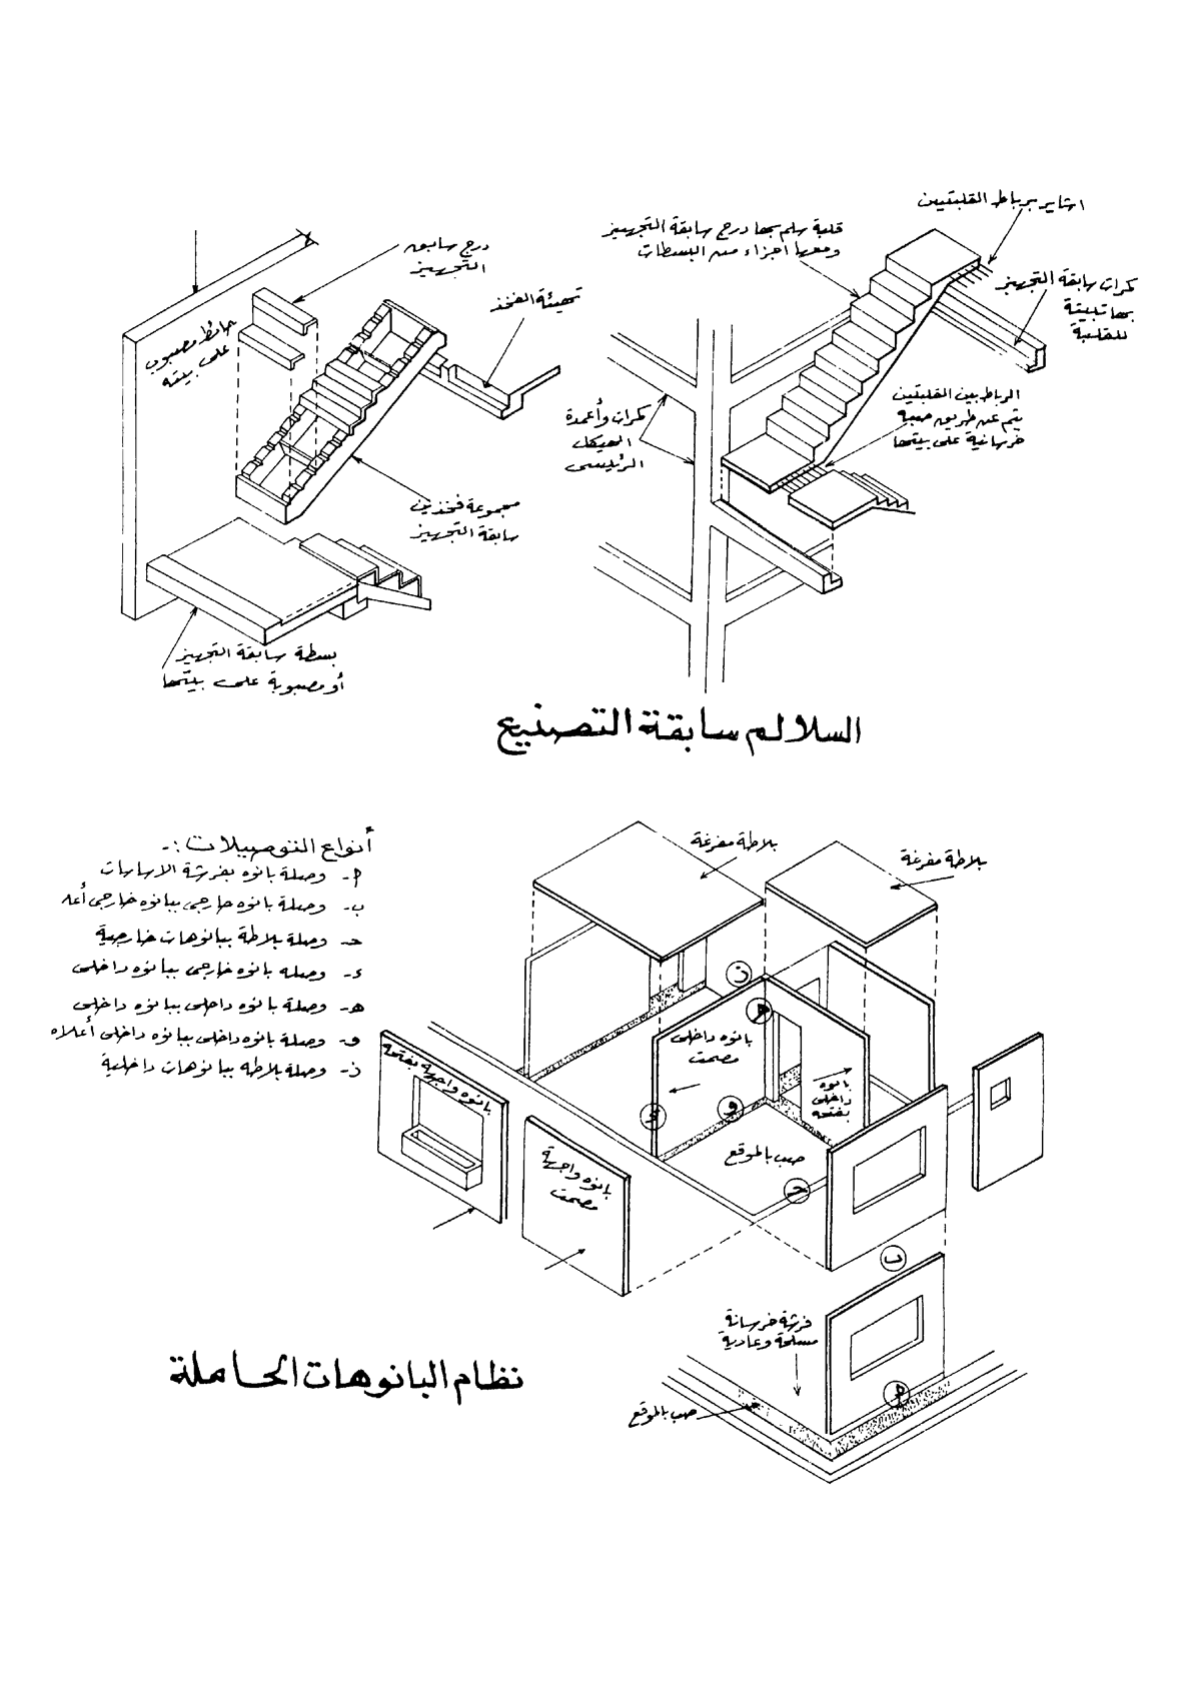 اشاير برباط القلبتين
قلبة سلم بها درج سابقة التجهيز
ومعها اجزاء من البسطات
كمرات سابقة التجهيز
بها تثبيتة
للقلبة
الرباط بين القلبتين
يتم عن طريق صبة
خرسانية على بيتها
كمرات وأعمدة
الهيكل
الرئيسى
درج سابق
التجهيز
تهيئة الفخذ
حائط مصبوب
على بيته
مجموعة فخذين
سابقة التجهيز
بسطة سابقة التجهيز
أو مصبوبة على بيتها
السلالم سابقة التصنيع
أنواع التوصيلات :-
م- وصلة بانوه بفرشة الاساسات
ب- وصلة بانوه خارجى ببانوه خارجى أعلاه
حـ- وصلة بلاطة ببانوهات خارجية
ء- وصله بانوه خارجى ببانوه داخلى
هـ- وصلة بانوه داخلى ببانوه داخلى
و- وصلة بانوه داخلى ببانوه داخلى أعلاه
ذ- وصلة بلاطه ببانوهات داخلية
بلاطة مفرغة
بلاطة مفرغة
ذ
هـ
بانوه داخلى
مصمت
بانوه
داخلى
بفتحه
ء
و
صب بالموقع
حـ
بانوه واجهة بفتحه
بانوه واجهة
مصمت
ب
فرشة خرسانة
مسلحة وعادية
م
صب بالموقع
نظام البانوهات الحاملة